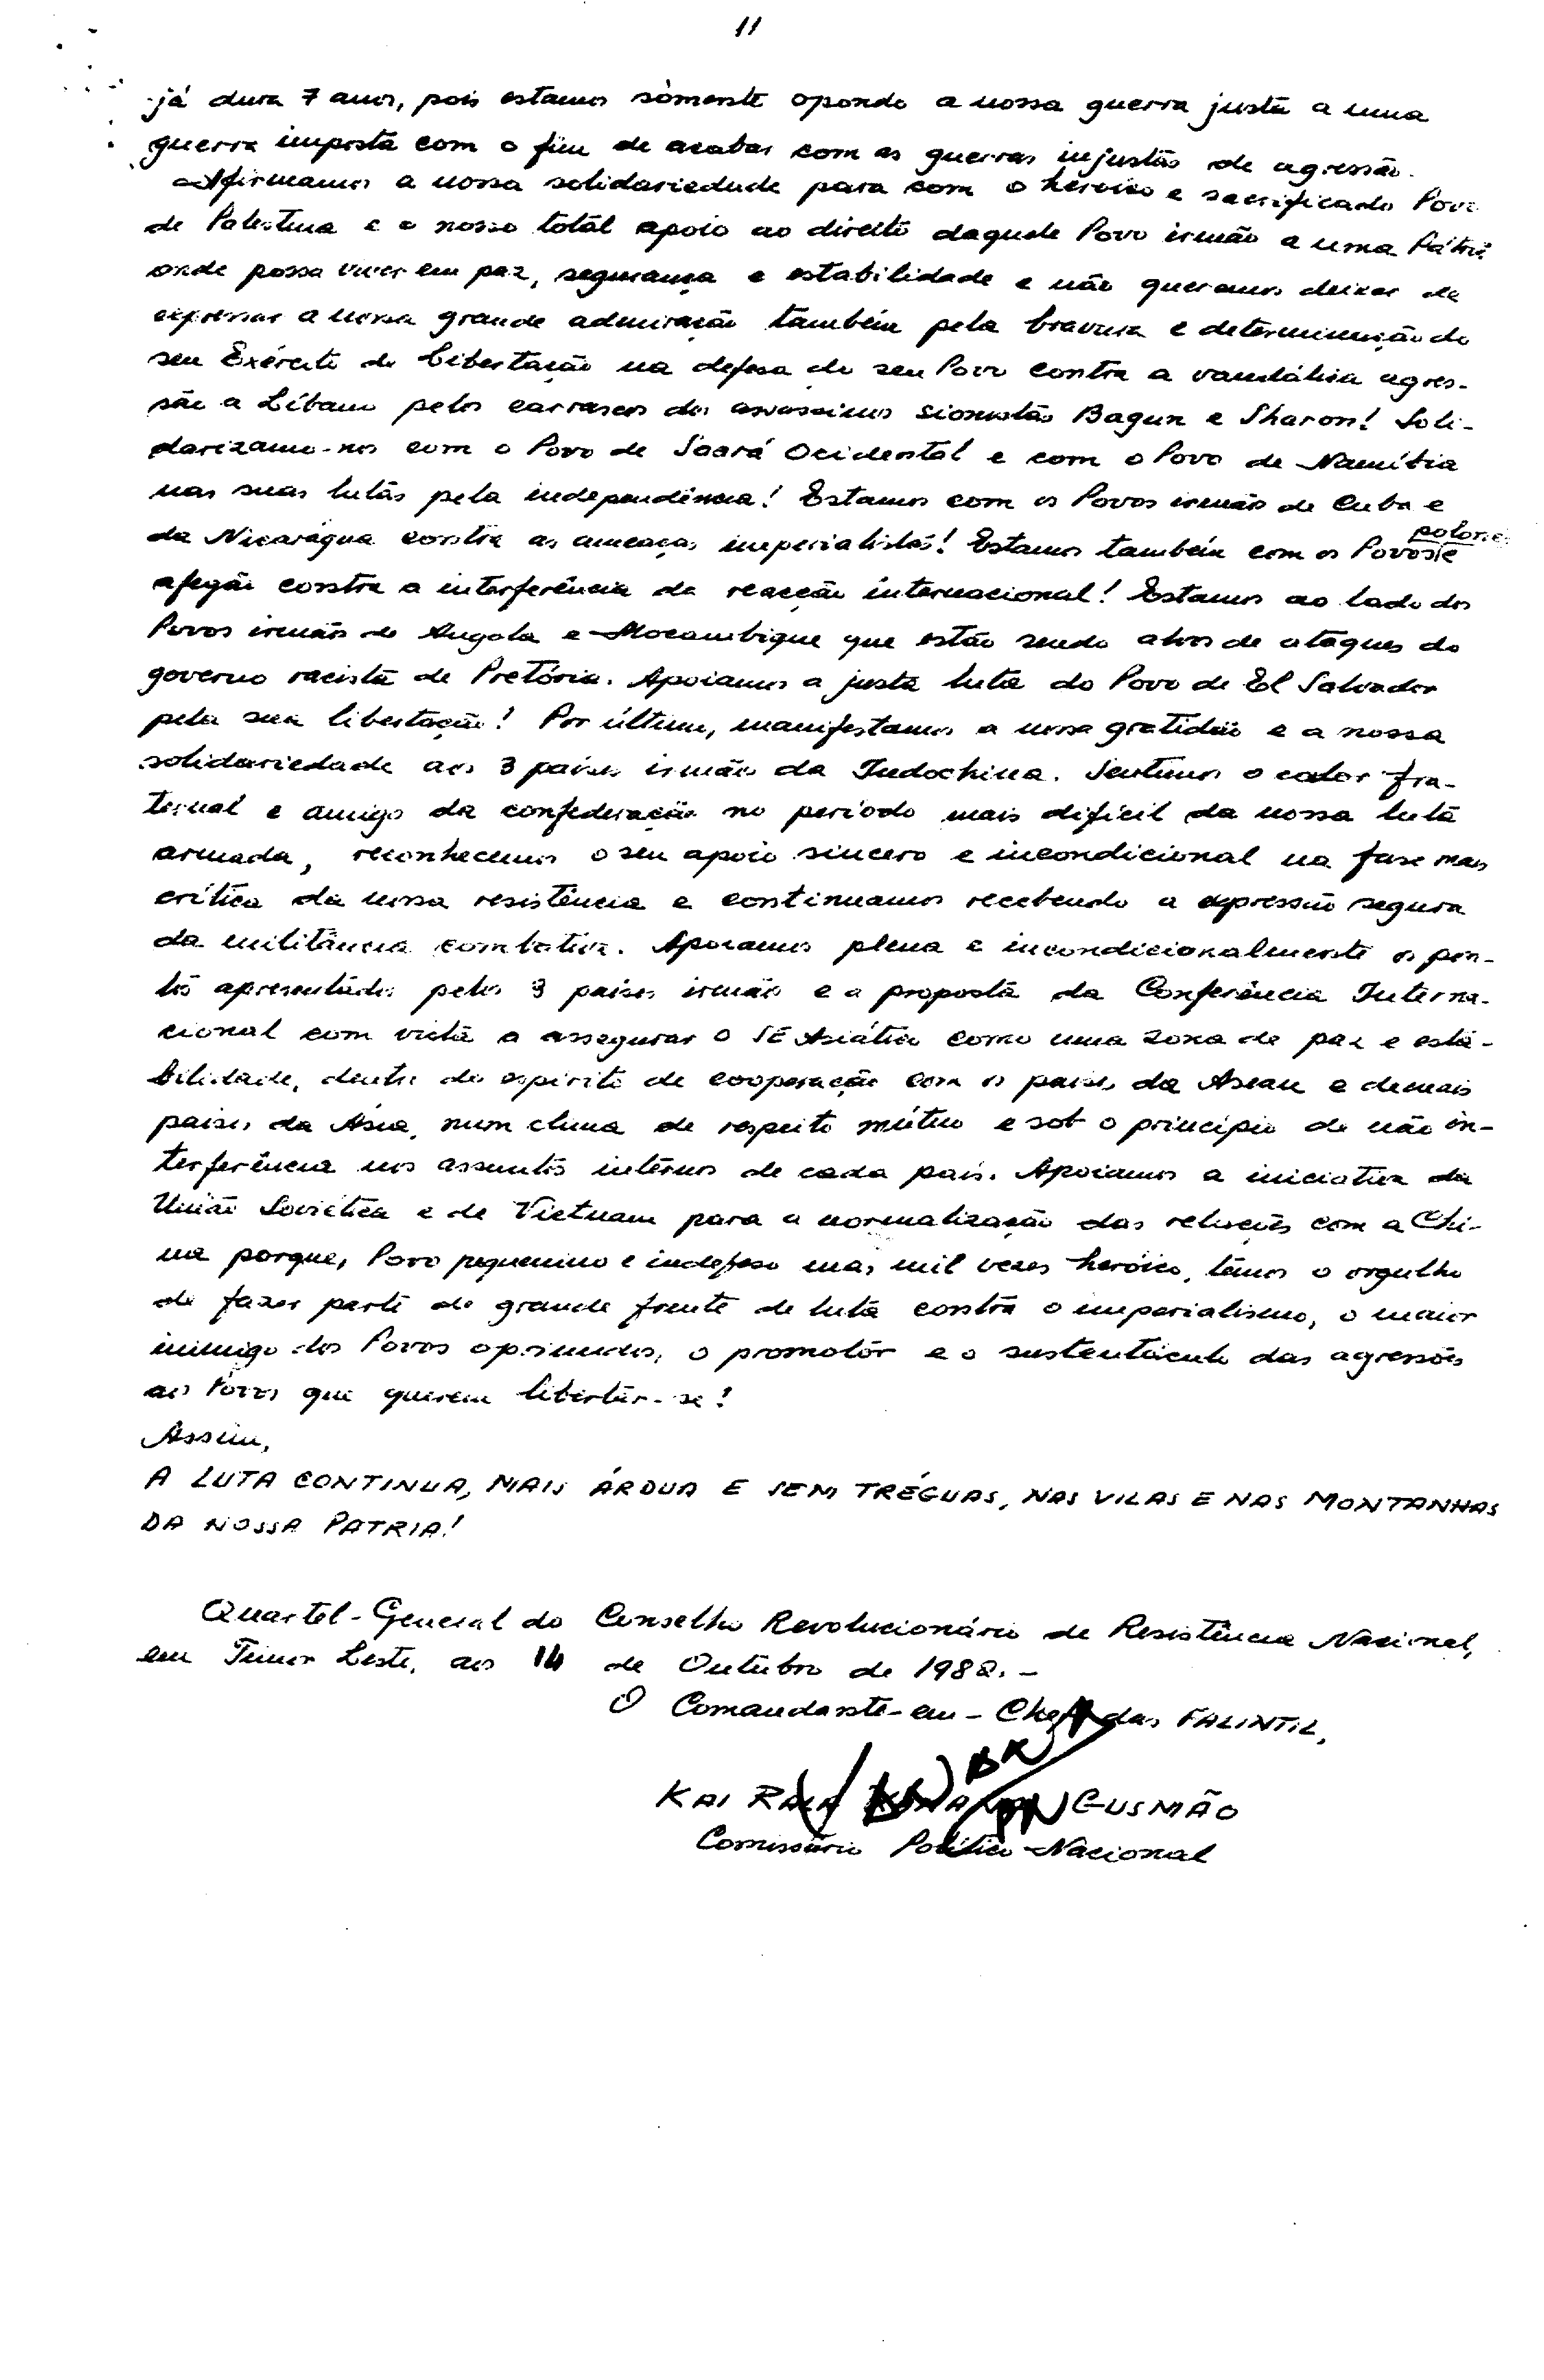 11
já dura 7 anos, pois estamos sòmente opondo a nossa guerra justa a uma
guerra imposta com o fim de acabar com as guerras injustas de agressão.
Afirmamos a nossa solidariedade para com o heroico e sacrificado Povo
de Palestina e o nosso total apoio ao direito daquele Povo irmão a uma Pátria
onde possa viver em paz, segurança e estabilidade e não queramos deixar de
expressar a nossa grande admiração também pela bravura e determinação do
seu Exército de Libertação na defesa do seu Povo contra a vandálica agres-
são a Líbano pelos carrascos dos assassinos sionistas Bagun e Sharon! Soli-
darizamo-nos com o Povo de Saará Ocidental e com o Povo de Namíbia
nas suas lutas pela independência! Estamos com os Povos irmãos de Cuba e
da Nicarágua contra as ameaças imperialistas! Estamos também com os Povos polone e
afegão contra a interferência da reacção internacional! Estamos ao lado dos
Povos irmãos de Angola e Moçambique que estão sendo alvos de ataques do
governo racista de Pretória. Apoiamos a justa luta do Povo de El Salvador
pela sua libertação! Por último, manifestamos a nossa gratidão e a nossa
solidariedade aos 3 países irmãos da Indochina. Sentimos o calor fra-
ternal e amigo da confederação no período mais difícil da nossa luta
armada, reconhecemos o seu apoio sincero e incondicional na fase mais
crítica da nossa resistência e continuamos recebendo a expressão segura
da militância combativa. Apoiamos plena e incondicionalmente os pon-
tos apresentados pelos 3 países irmãos e a proposta da Conferência Interna-
cional com vista a assegurar o SE Asiático como uma zona de paz e esta-
bilidade, dentro do espírito de cooperação com os países da Asean e demais
países da Ásia, num clima de respeito mútuo e sob o princípio de não in-
terferência nos assuntos internos de cada país. Apoiamos a iniciativa da
União Soviética e de Vietnam para a normalização das relações com a Chi-
na porque, Povo pequenino e indefeso mas mil vezes heróico, temos o orgulho
de fazer parte da grande frente de luta contra o imperialismo, o maior
inimigo dos Povos oprimidos, o promotor e o sustentáculo das agressões
aos Povos que querem libertar-se!
Assim,
A LUTA CONTINUA, MAIS ÁRDUA E SEM TRÉGUAS, NAS VILAS E NAS MONTANHAS
DA NOSSA PATRIA!
Quartel-General do Conselho Revolucionário de Resistência Nacional,
em Timor Leste, aos 14 de Outubro de 1982.-
O Comandante-em-Chefe das FALINTIL,
KAI RALA XANANA GUSMÃO
Comissário Político Nacional